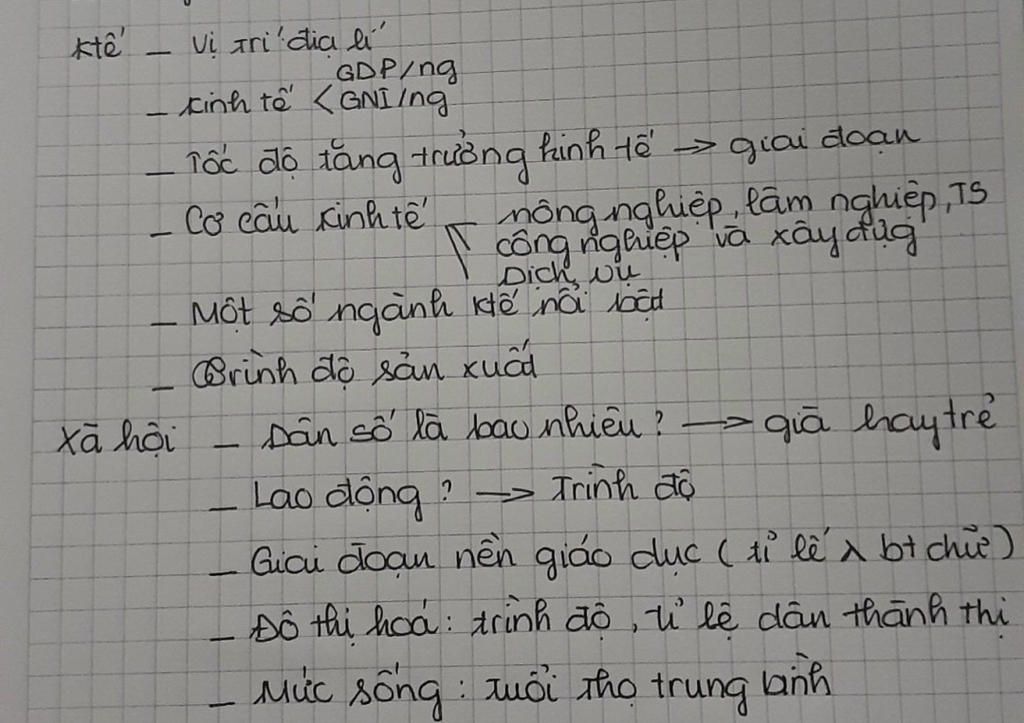 Ktế – Vị trí địa lí
GDP/ng
– Kinh tế < GNI/ng
– Tốc độ tăng trưởng kinh tế → giai đoạn
– Cơ cấu kinh tế – nông nghiệp, lâm nghiệp, TS
công nghiệp và xây dựg
Dịch vụ
– Một số ngành ktế nổi bật
– Trình độ sản xuất
Xã hội – Dân số là bao nhiêu? → già hay trẻ
– Lao động? → Trình độ
– Giai đoạn nền giáo dục (tỉ lế λ bt chữ)
– Đô thị hoá: trình độ, tỉ lệ dân thành thị
– Mức sống: tuổi thọ trung bình